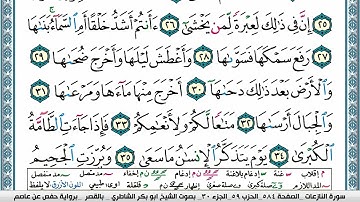 ٢٥ إِنَّ فِي ذَٰلِكَ لَعِبْرَةً لِّمَن يَخْشَىٰٓ ٢٦ ءَأَنتُمْ أَشَدُّ خَلْقًا أَمِ ٱلسَّمَآءُ بَنَىٰهَا
٢٧ رَفَعَ سَمْكَهَا فَسَوَّىٰهَا ٢٨ وَأَغْطَشَ لَيْلَهَا وَأَخْرَجَ ضُحَىٰهَا ٢٩
وَٱلْأَرْضَ بَعْدَ ذَٰلِكَ دَحَىٰهَآ ٣٠ أَخْرَجَ مِنْهَا مَآءَهَا وَمَرْعَىٰهَا ٣١
وَٱلْجِبَالَ أَرْسَىٰهَا ٣٢ مَتَٰعًا لَّكُمْ وَلِأَنْعَٰمِكُمْ ٣٣ فَإِذَا جَآءَتِ ٱلطَّآمَّةُ
ٱلْكُبْرَىٰ ٣٤ يَوْمَ يَتَذَكَّرُ ٱلْإِنسَٰنُ مَا سَعَىٰ ٣٥ وَبُرِّزَتِ ٱلْجَحِيمُ
سورة النازعات . الصفحة ٥٨٤ . الحزب ٥٩ . الجزء ٣٠ . بصوت الشيخ ابو بكر الشاطري . بالقصر . برواية حفص عن عاصم